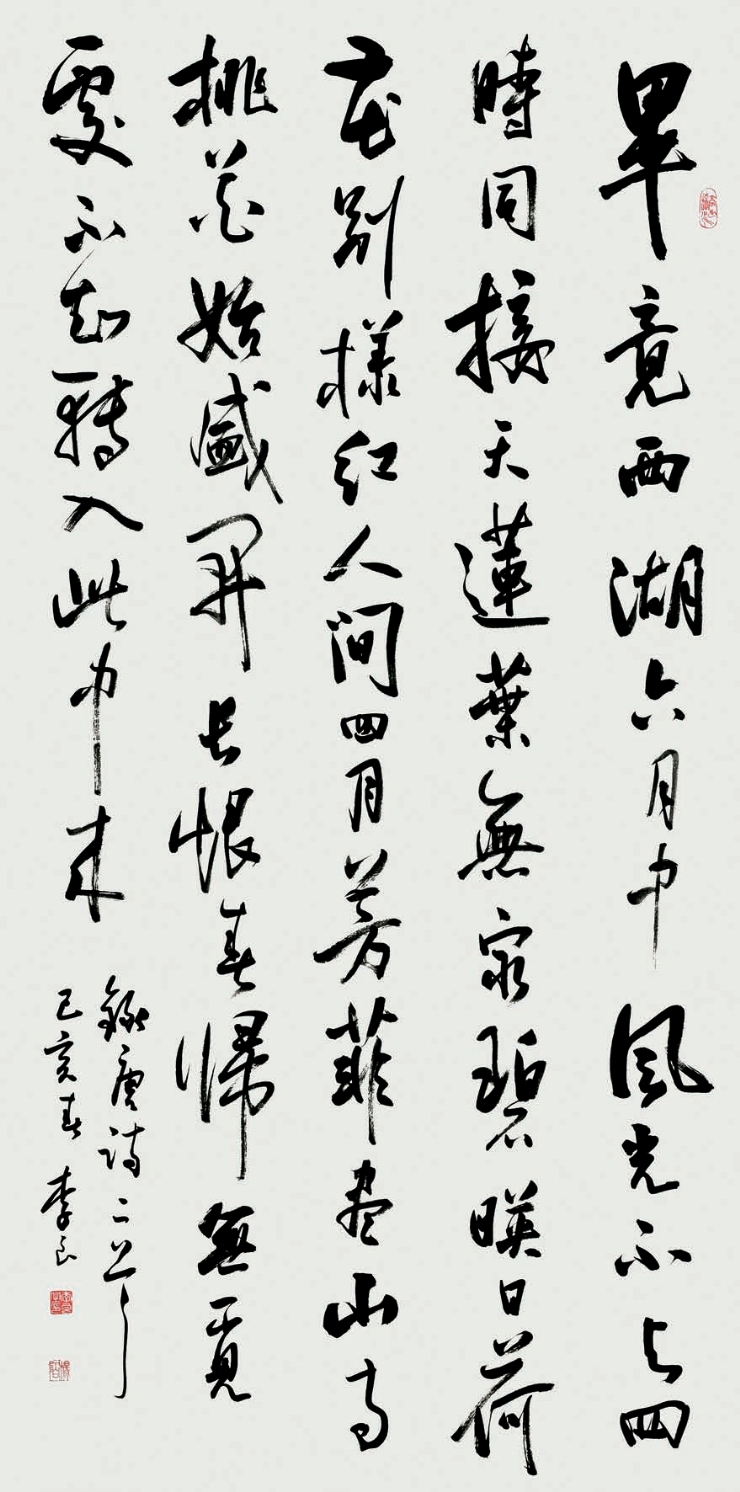 畢竟西湖六月中風光不与四
時同接天蓮葉無窮碧暎日荷
花別樣紅人间四月芳菲尽山寺
桃花始盛開长恨春歸無覓
處不知轉入此中来
錄唐詩二首
己亥春 李良